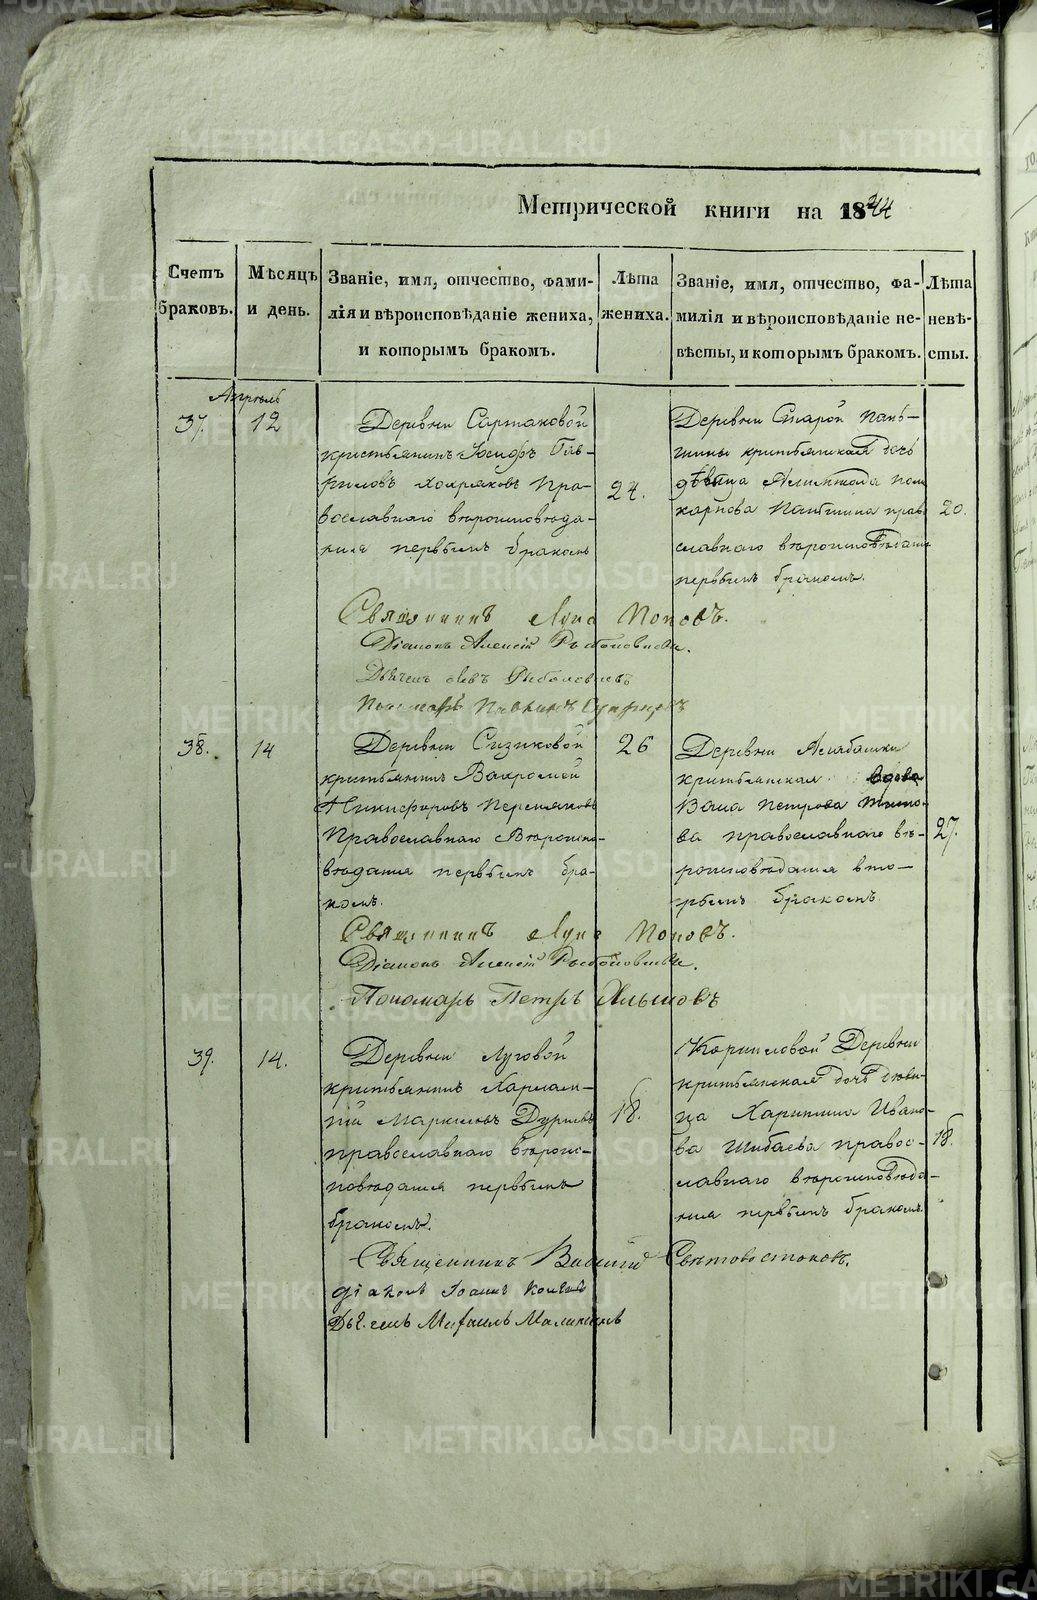 Метрической книги на 1844
Счетъ браковъ.
Мѣсяцъ и день.
Званіе, имя, отчество, фами-
лія и вѣроисповѣданіе жениха,
и которымъ бракомъ.
Лѣта
жениха.
Званіе, имя, отчество, фа-
милія и вѣроисповѣданіе не-
вѣсты, и которымъ бракомъ.
Лѣта
невѣ-
сты.
Апрѣль
37.
12
Деревни Сартаковой
крестьянинъ Іосифъ Гав-
риловъ Хохряковъ Пра-
вославнаго вѣроисповѣда-
нія первымъ бракомъ
24.
Деревни Старой Пань-
шины крестьянская дочь
дѣвица Поли
карпова Паньшина право
славнаго вѣроисповѣданія
первымъ бракомъ.
20.
Священникъ Лука Поповъ.
Діаконъ Алексій
Дьячекъ Левъ
Пономарь Павлинъ
38.
14
Деревни Сизиковой
крестьянинъ Вахромей
Никифоровъ
Православнаго Вѣроиспо-
вѣданія первымъ бра-
комъ.
26
Деревни
крестьянская вдова
Васа Петрова
ва православнаго вѣ-
роисповѣданія вто-
рымъ бракомъ.
27.
Священникъ Лука Поповъ.
Діаконъ Алексій
Пономарь Петръ
39.
14.
Деревни Луговой
крестьянинъ Харлам-
пій Маркиловъ
православнаго вѣроис-
повѣданія первымъ
бракомъ.
18.
Корниловой Деревни
крестьянская дочь дѣви-
ца Харитина Ивано-
ва Шибаева правос-
лавнаго вѣроисповѣда-
нія первымъ бракомъ.
18.
Священникъ Василій
діаконъ Іоаннъ
Дьячекъ Михаилъ
METRIKI.GASO-URAL.RU